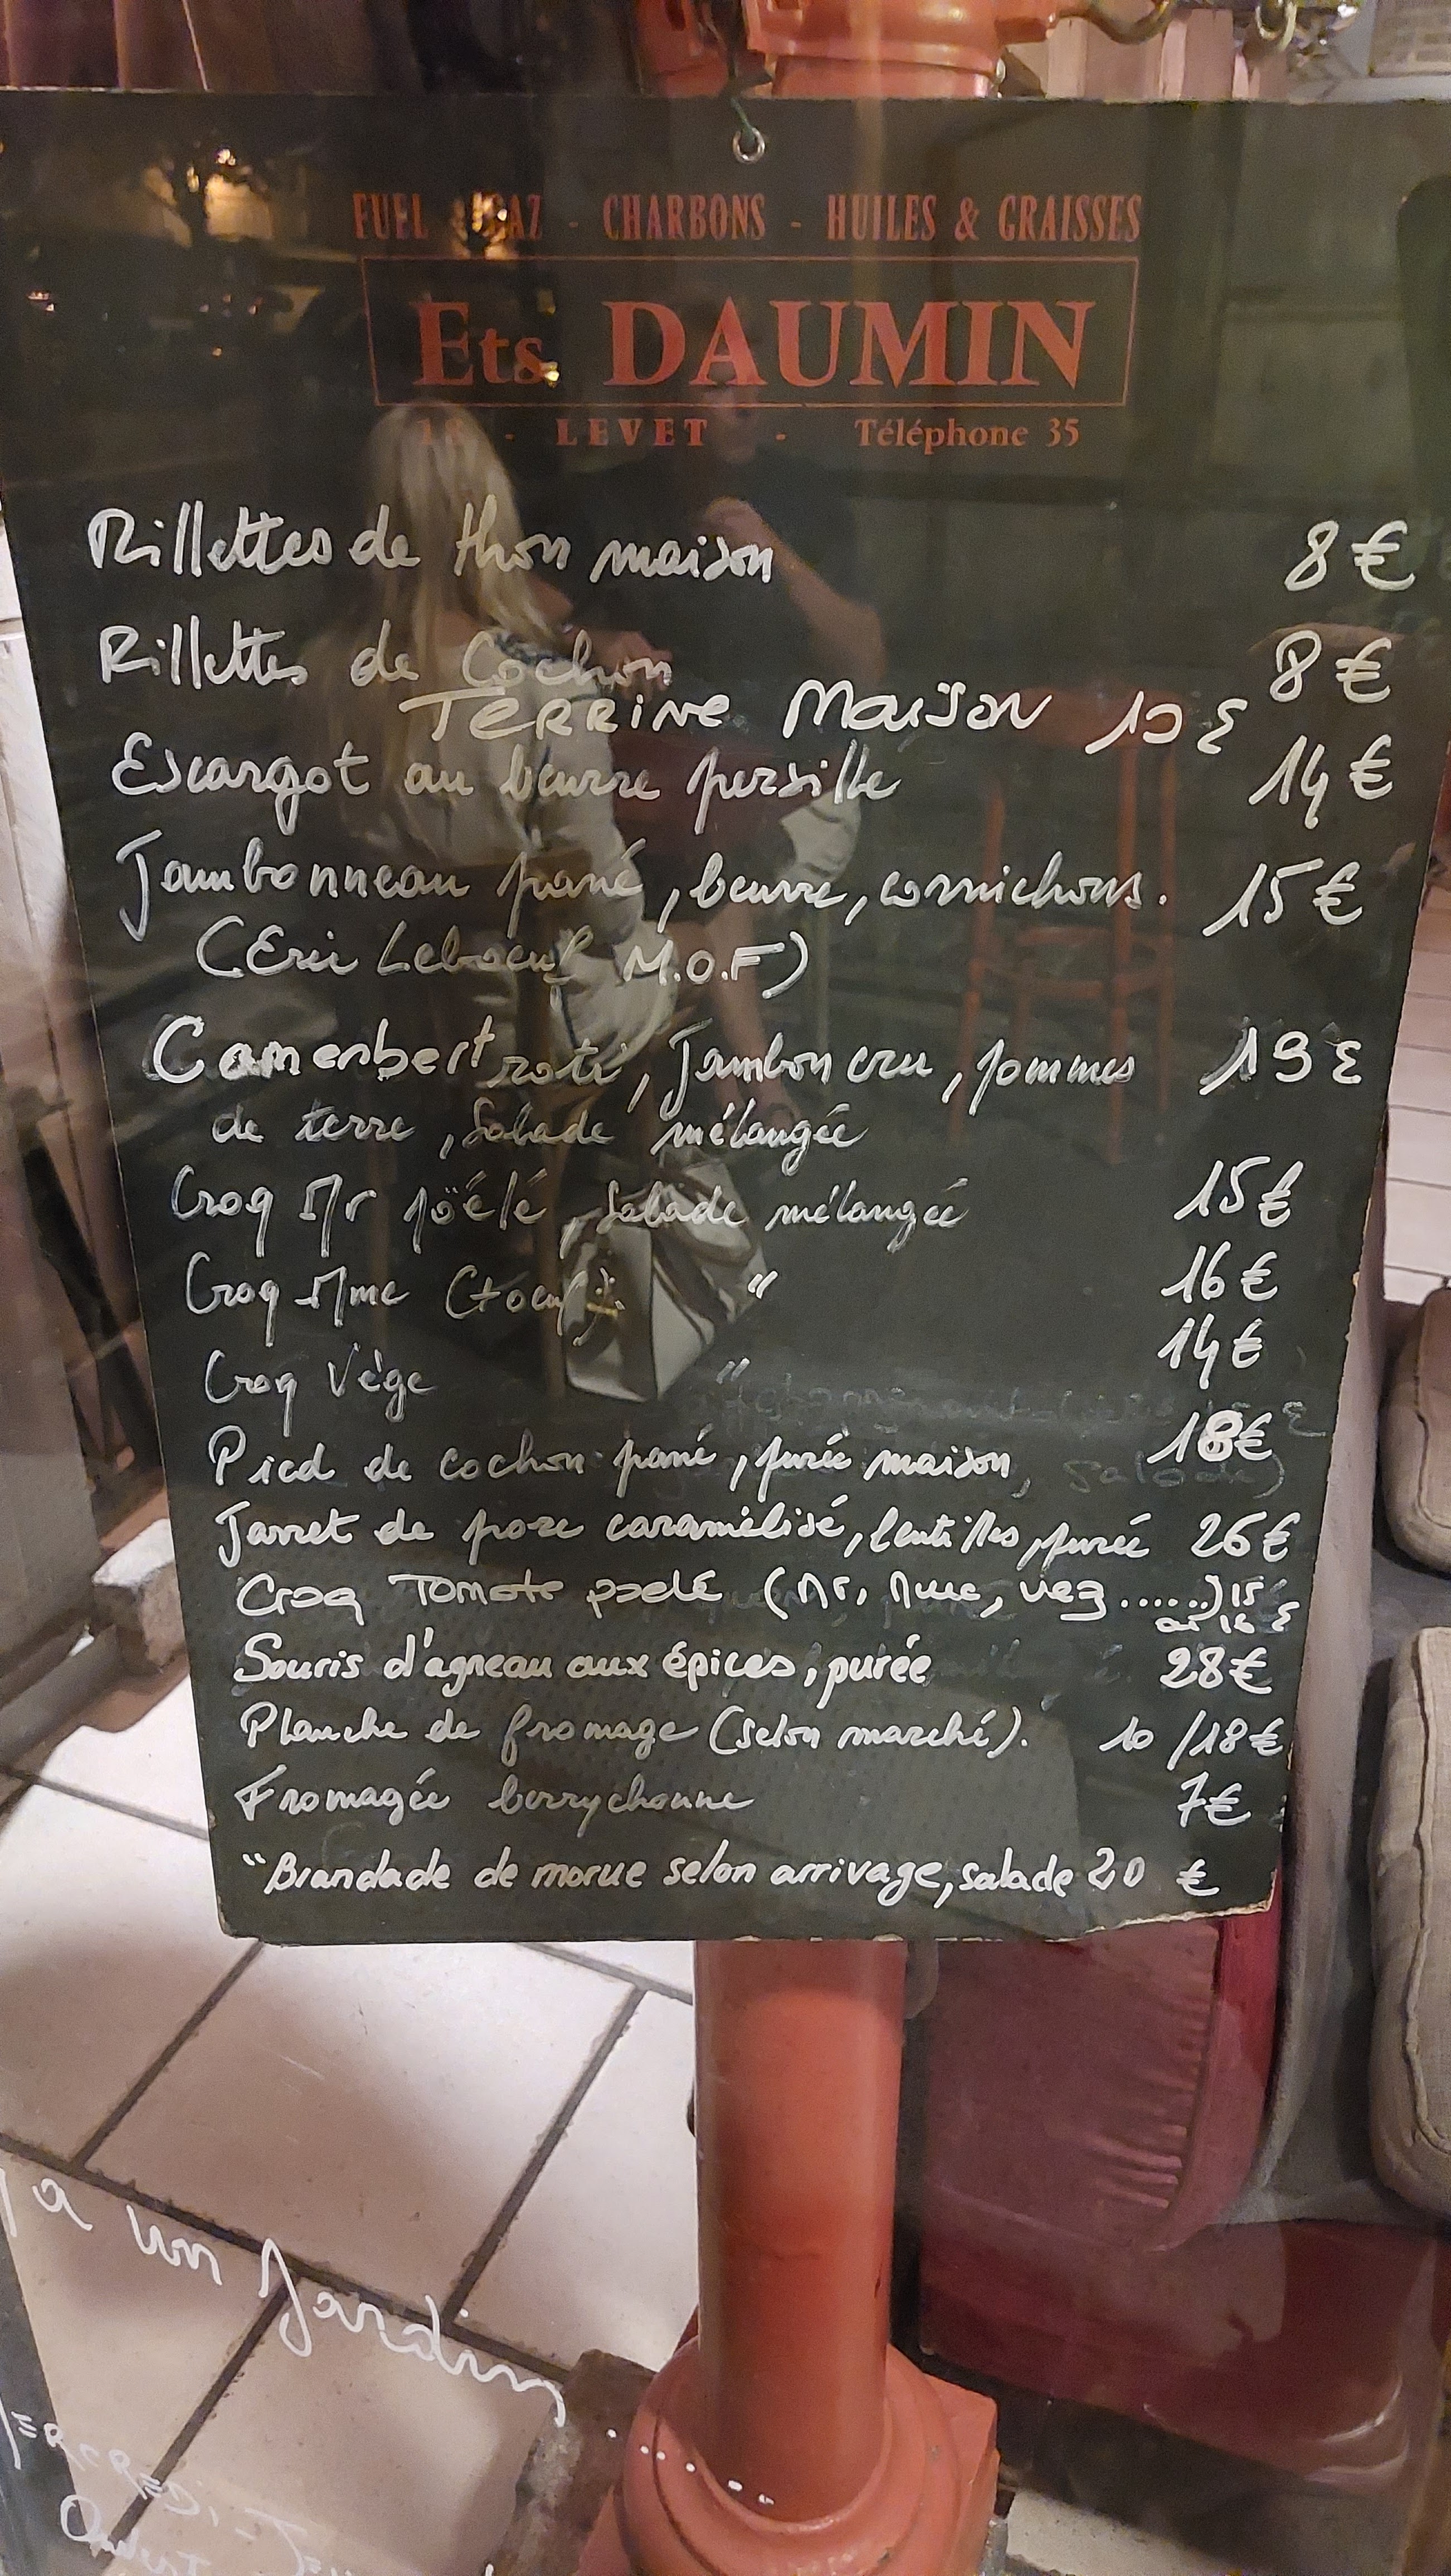 FUEL GAZ - CHARBONS - HUILES & GRAISSES
Ets DAUMIN
18 - LEVET - Téléphone 35
Rillettes de thon maison 8€
Rillettes de Cochon 8€
TERRINE Maison 10€
Escargot au beurre persillé 14€
Jambonneau pané, beurre, cornichons. 15€
(Eric Leboeuf M.O.F)
Camenbert roti, Jambon cru, pommes 19€
de terre, Salade mélangée
Croq Mr pöélé, Salade mélangée 15€
Croq Mme (+oeuf). " 16€
Croq Vége " 14€
Pied de cochon pané, purée maison, 18€
Jarret de porc caramélisé, lentilles, purée 26€
Croq Tomate poelé (Mr, Mme, veg......) 15
ou 16€
Souris d'agneau aux épices, purée 28€
Planche de fromage (selon marché). 10/18€
Fromagée berrychonne 7€
"Brandade de morue selon arrivage, salade 20 €
a un Jardin.....